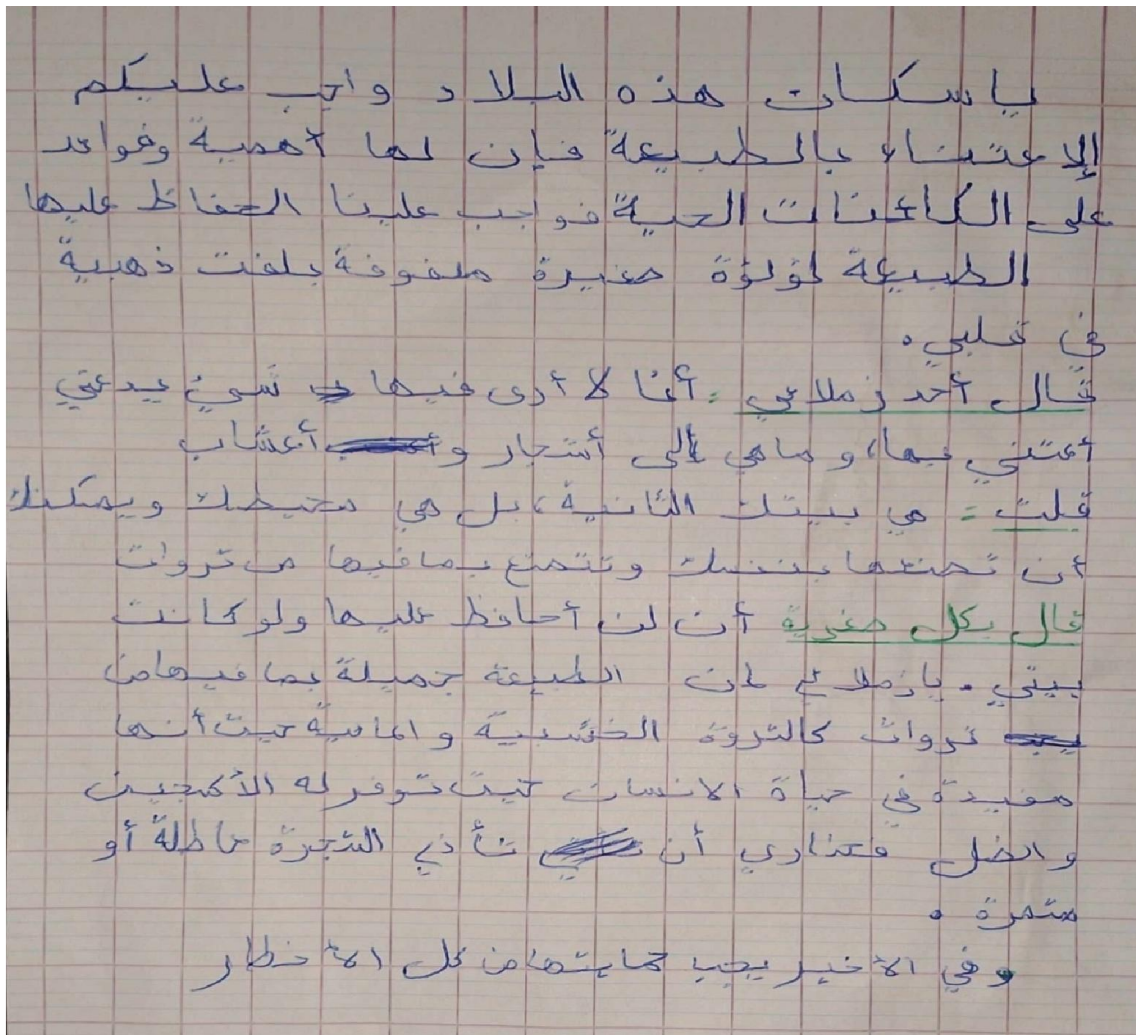 ياسكان هذه البلاد واجب عليكم
الإعتناء بالطبيعة فإن لها أهمية وفوائد
على الكائنات الحية فواجب علينا الحفاظ عليها
الطبيعة لؤلؤة صغيرة ملفوفة بلفت ذهبية
في قلبي.
قال أحد زملائي : أنا لا أرى فيها شيئ يدعني
أعتني بها، و ماهي إلى أشجار و أعشاب
قلت : هي بيتك الثانية، بل هي محيطك ويمكنك
أن تصنعها بنفسك وتتمتع بمافيها من تروات
قال بكل صغرية أن لن أحافظ عليها ولو كانت
بيتي. يازملائي إن الطبيعة جميلة بما فيهامن
تروات كالتروة الخشبية و المائية حيت أنها
مفيدة في حياة الانسان حيت توفر له الأكجين
والضل فحذاري أن تأذي الشجرة عاطلة أو
متمرة.
وفي الأخير يجب حمايتهامن كل الأخطار